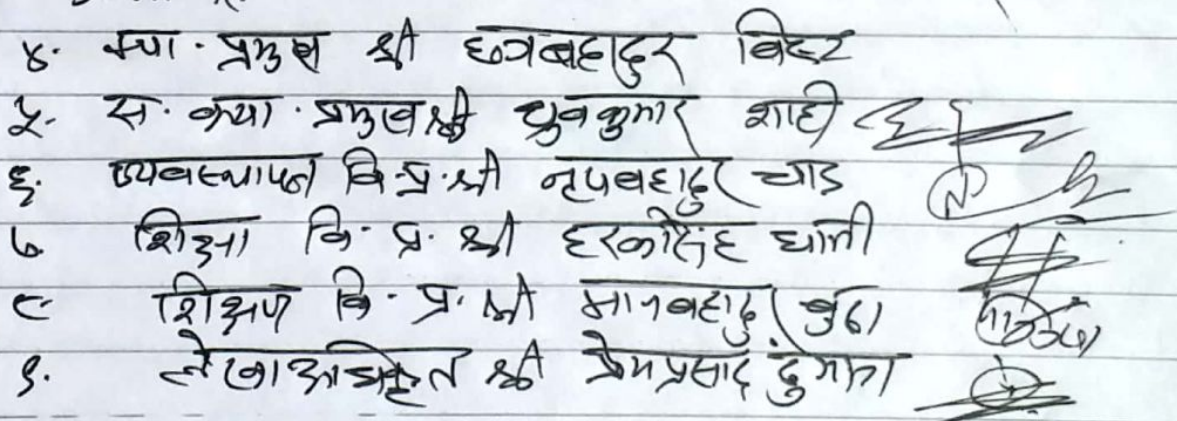 ४. क्या. प्रमुख श्री छत्रबहादुर बिष्ट
५. स. क्या. प्रमुख श्री ध्रुवकुमार शाही
६. व्यवस्थापन वि.प्र. श्री नृपबहादुर चाड
७ शिक्षा वि. प्र. श्री हरकसिंह धामी
८ शिक्षण वि. प्र. श्री मानबहादुर बुढा
९. लेखा अधिकृत श्री प्रेमप्रसाद